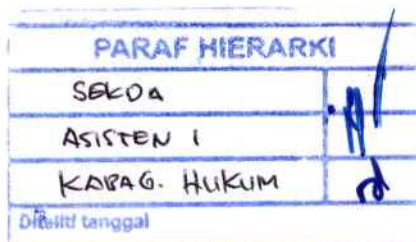 PARAF HIERARKI
SEKDA
ASISTEN I
KABAG. HUKUM
Diteliti tanggal